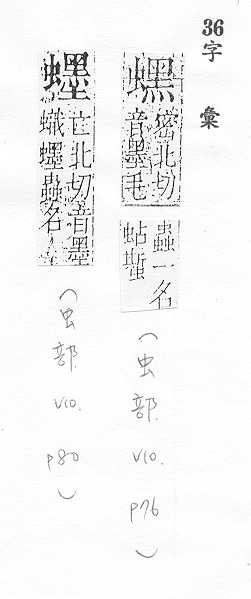 36
字彙
蟔
密北切
音墨毛
蟲一名
蛅蟴
(虫部. V10. P76)
䘃
亡北切音墨
蟙䘃蟲名
(虫部. V10. P80)